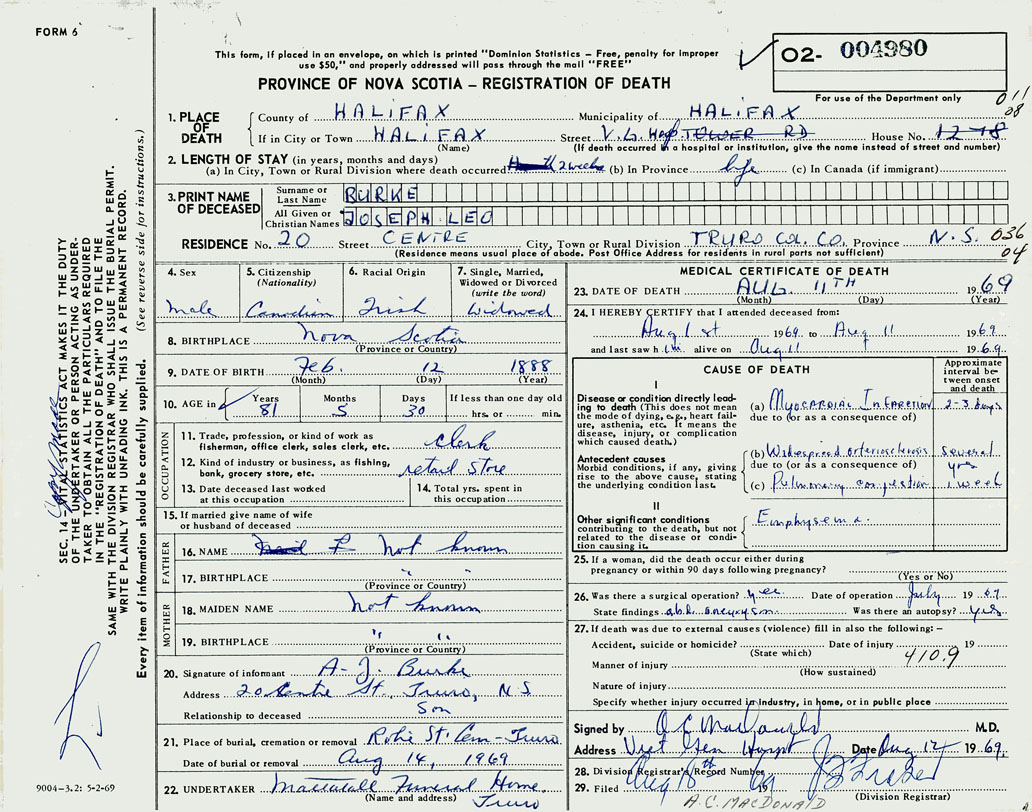 FORM 6
This form, if placed in an envelope, on which is printed "Dominion Statistics – Free, penalty for improper
use $50," and properly addressed will pass through the mail "FREE"
O2- 004980
For use of the Department only
PROVINCE OF NOVA SCOTIA – REGISTRATION OF DEATH
011
08
1. PLACE OF DEATH
County of HALIFAX Municipality of HALIFAX
If in City or Town HALIFAX Street V.G. Hosp TOWER RD House No. 12-18
(Name) (If death occurred in a hospital or institution, give the name instead of street and number)
2. LENGTH OF STAY (in years, months and days)
(a) In City, Town or Rural Division where death occurred 2 weeks (b) In Province life (c) In Canada (if immigrant)
3. PRINT NAME OF DECEASED
Surname or Last Name BURKE
All Given or Christian Names JOSEPH LEO
RESIDENCE No. 20 Street CENTRE City, Town or Rural Division TRURO Col. Co. Province N.S. 036
04
(Residence means usual place of abode. Post Office Address for residents in rural parts not sufficient)
4. Sex
male
5. Citizenship (Nationality)
Canadian
6. Racial Origin
Irish
7. Single, Married, Widowed or Divorced (write the word)
Widowed
8. BIRTHPLACE Nova Scotia
(Province or Country)
9. DATE OF BIRTH Feb. 12 1888
(Month) (Day) (Year)
10. AGE in Years 81 Months 5 Days 30 If less than one day old hrs. or min.
OCCUPATION
11. Trade, profession, or kind of work as fisherman, office clerk, sales clerk, etc. clerk
12. Kind of industry or business, as fishing, bank, grocery store, etc. retail store
13. Date deceased last worked at this occupation
14. Total yrs. spent in this occupation
15. If married give name of wife or husband of deceased
FATHER
16. NAME Not known
17. BIRTHPLACE " "
(Province or Country)
MOTHER
18. MAIDEN NAME Not known
19. BIRTHPLACE " "
(Province or Country)
20. Signature of informant A. J. Burke
Address 20 Centre St., Truro, N S
Relationship to deceased Son
21. Place of burial, cremation or removal Robie St. Cem - Truro
Date of burial or removal Aug 14, 1969
22. UNDERTAKER Mattatall Funeral Home
(Name and address) Truro
MEDICAL CERTIFICATE OF DEATH
23. DATE OF DEATH AUG. 11TH 1969
(Month) (Day) (Year)
24. I HEREBY CERTIFY that I attended deceased from:
Aug 1st 1969 to Aug 11 1969
and last saw him alive on Aug 11 1969
CAUSE OF DEATH
Approximate interval between onset and death
I
Disease or condition directly leading to death (This does not mean the mode of dying, e.g., heart failure, asthenia, etc. It means the disease, injury, or complication which caused death.)
(a) Myocardial Infarction 2-3 days
due to (or as a consequence of)
Antecedent causes
Morbid conditions, if any, giving rise to the above cause, stating the underlying condition last.
(b) Widespread arteriosclerosis several yrs
due to (or as a consequence of)
(c) Pulmonary congestion 1 week
II
Other significant conditions contributing to the death, but not related to the disease or condition causing it.
Emphysema.
25. If a woman, did the death occur either during pregnancy or within 90 days following pregnancy?
(Yes or No)
26. Was there a surgical operation? yes Date of operation July 1969
State findings abd. aneurysm Was there an autopsy? yes
27. If death was due to external causes (violence) fill in also the following: –
Accident, suicide or homicide? Date of injury 19
(State which) 410.9
Manner of injury
(How sustained)
Nature of injury
Specify whether injury occurred in industry, in home, or in public place
Signed by A C MacDonald M.D.
Address Vict Gen Hospt Date Aug 12 1969
28. Division Registrar's Record Number
29. Filed Aug 18th 1969
(Division Registrar)
A.C. MACDONALD
SEC. 14 – VITAL STATISTICS ACT MAKES IT THE DUTY
OF THE UNDERTAKER OR PERSON ACTING AS UNDER-
TAKER TO OBTAIN ALL THE PARTICULARS REQUIRED
IN THE "REGISTRATION OF DEATH" AND TO FILE THE
SAME WITH THE DIVISION REGISTRAR WHO SHALL ISSUE THE BURIAL PERMIT.
WRITE PLAINLY WITH UNFADING INK. THIS IS A PERMANENT RECORD.
Every item of information should be carefully supplied. (See reverse side for instructions.)
9004-3.2: 5-2-69